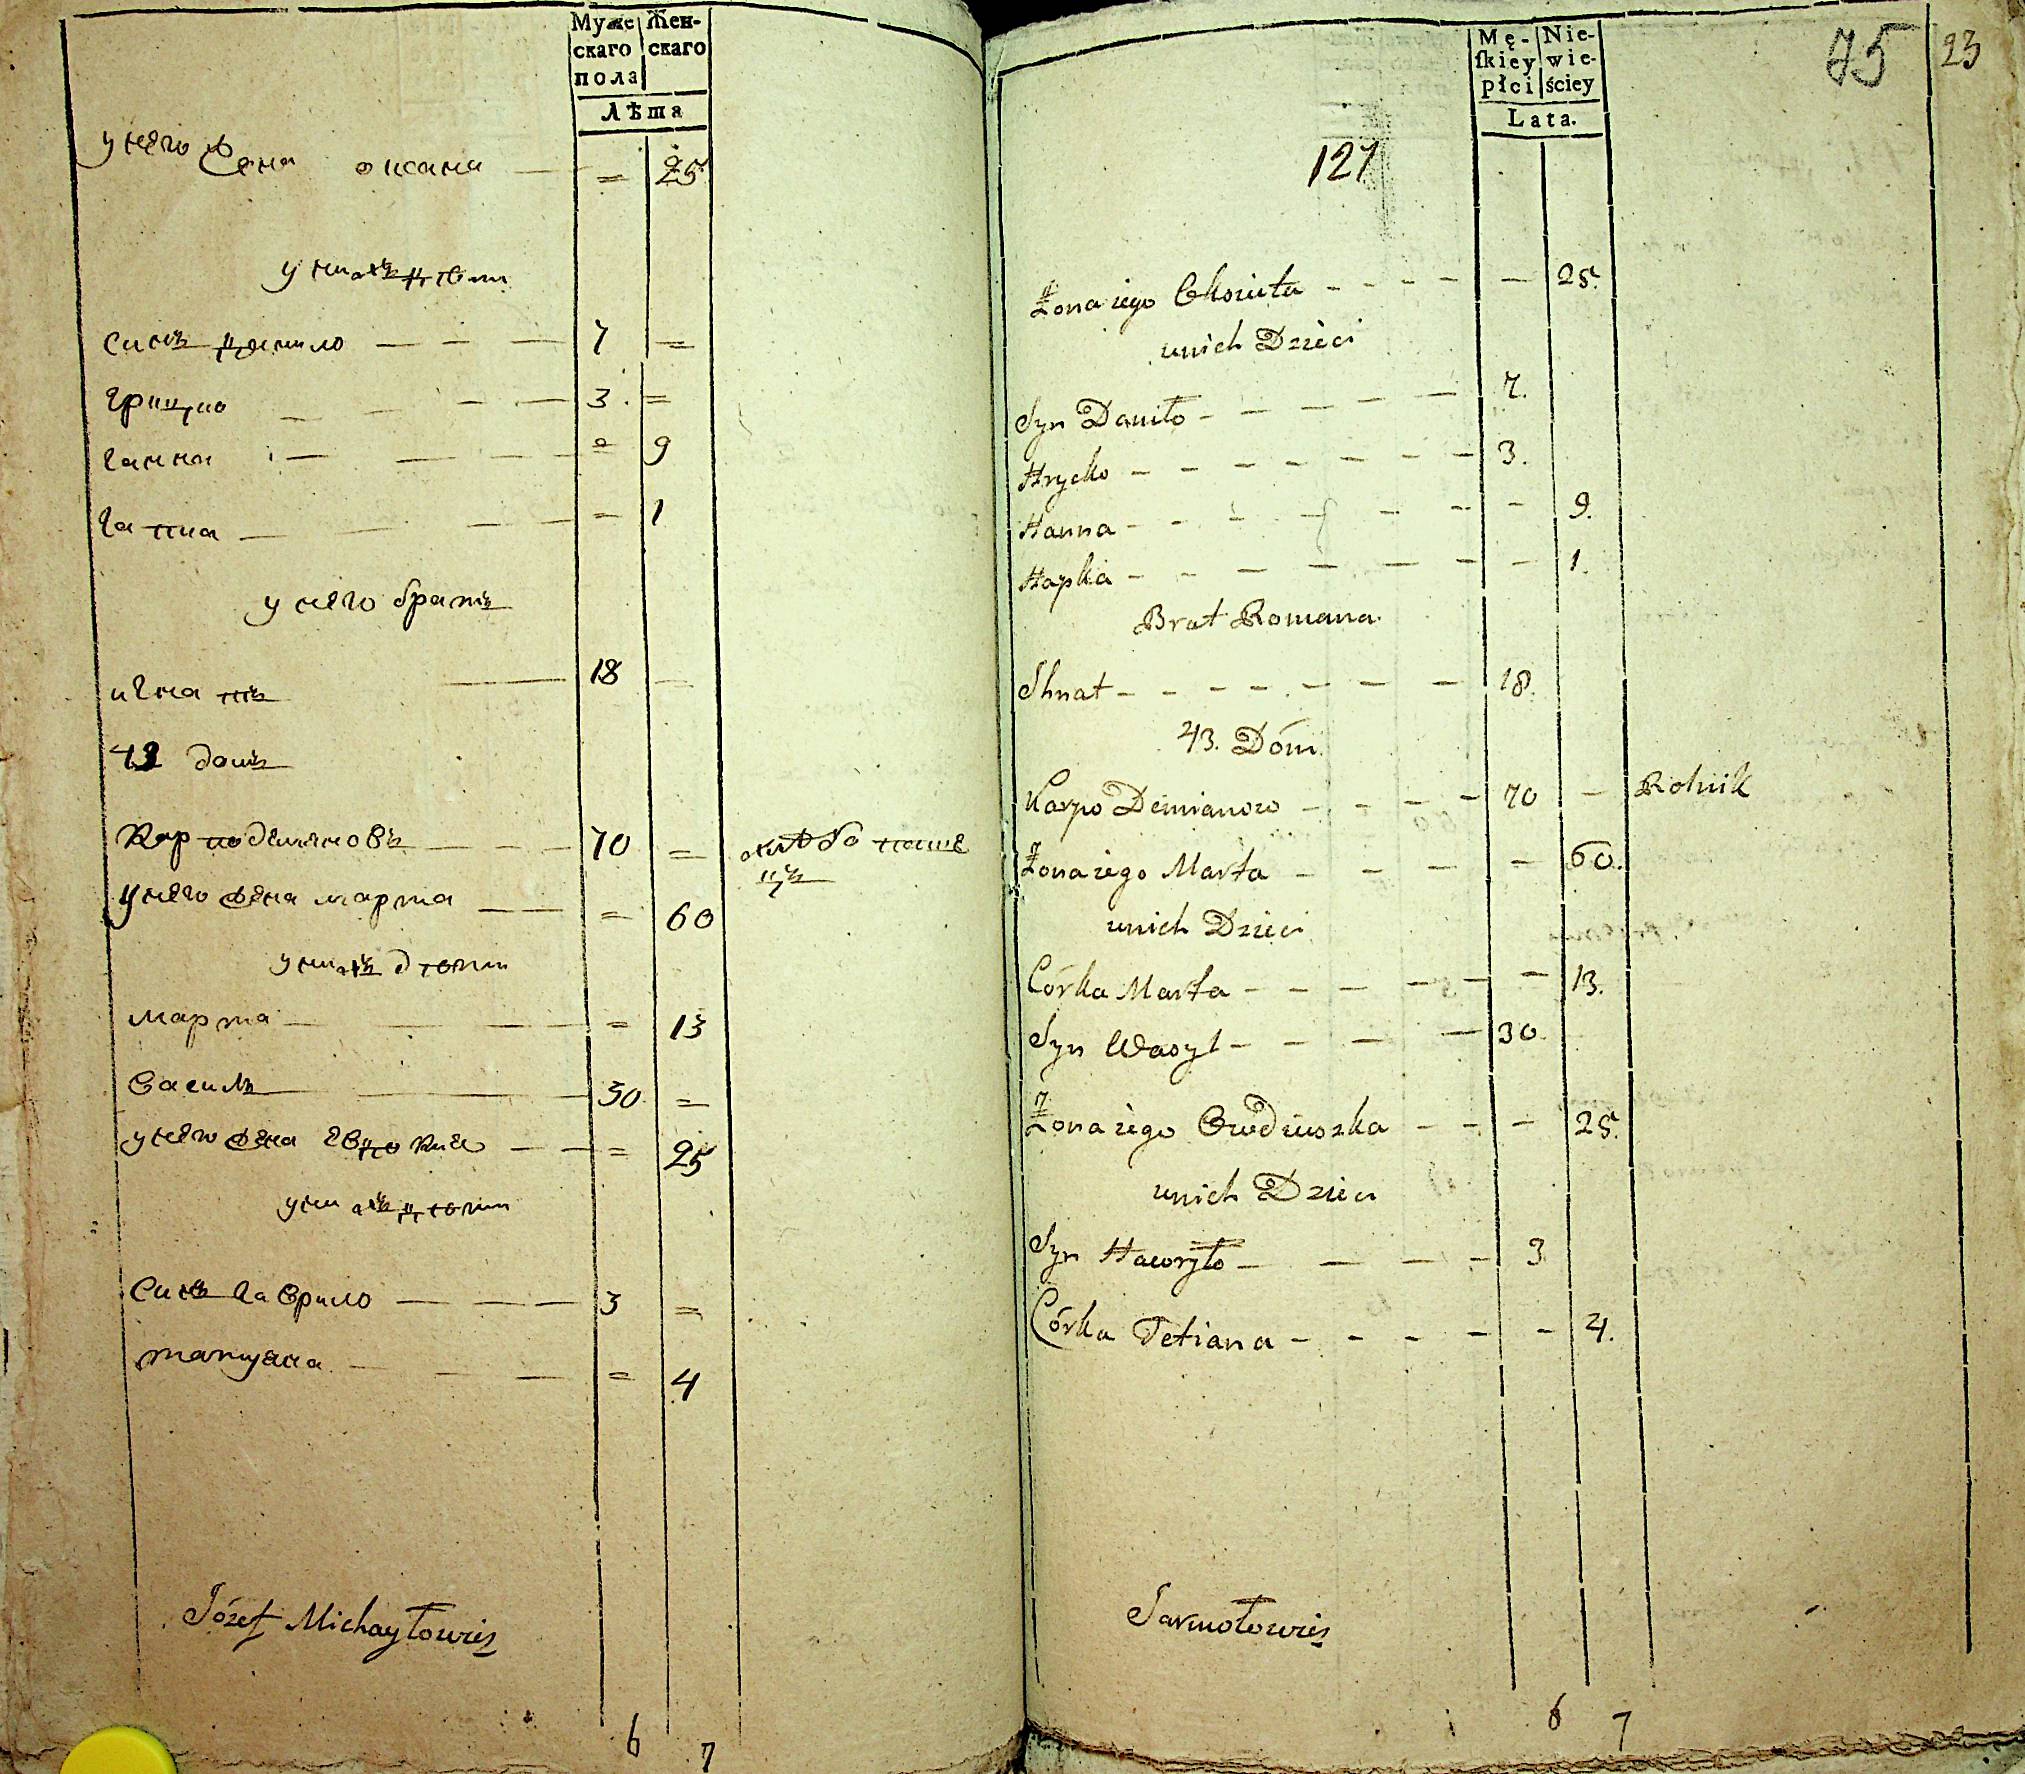 Муже Жен-
скаго скаго
пола
Лѣта
у него жена оксана — = 25
у нихъ дѣти
синъ данило — — — 7 =
грицко — — — — 3 . =
ганна — — — — = 9
гапка — — — — = 1
у него братъ
игнатъ — 18 —
43 домъ
Карпо демяновъ — — — 70 = хлѣбопаше
цъ
у него жена марта — — = 60
у нихъ дѣти
марта — — — — = 13
василь — — — 30 =
у него жена евдокия — — = 25
у нихъ дѣти
синъ гаврило — — — 3 =
татуяна — — — = 4
Józef Michayłowis
6 7
75 23
Mę- Nie-
ſkiey wie-
płci ściey
Lata.
127
Żona iego — — — — — 25.
unich Dzieci
Syn Daniło — — — — — 7.
Hrycko — — — — — — — 3.
Hanna — — — — — — — 9.
Hapka — — — — — — — — 1.
Brat Romana.
Ihnat — — — — — — — 18.
43. Dóm.
Karpo Demianow — — — — 70 — Rolnik
Żona iego Marta — — — — 60.
unich Dzieci
Córka Marta — — — — — — 13.
Syn Wasyl — — — — 30.
Żona iego Owdiuszka — — — 25.
unich Dzieci
Syn Hawryło — — — — — 3
Córka Tetiana — — — — — 4.
Jarmołowis
6 7